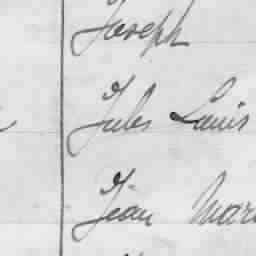 Joseph
Jules Louis
Jean Mari